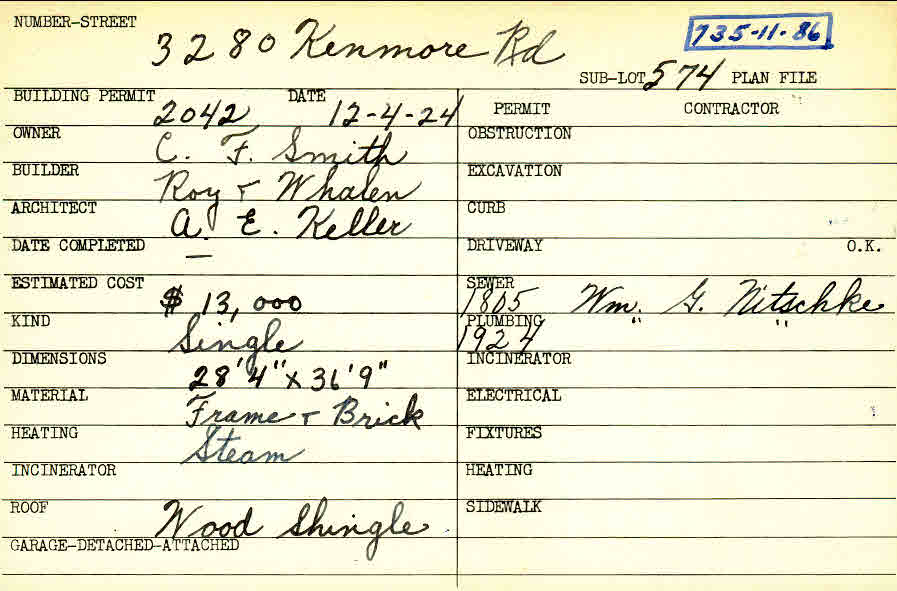 NUMBER-STREET 3280 Kenmore Rd 735-11-86
SUB-LOT 574 PLAN FILE
BUILDING PERMIT 2042 DATE 12-4-24 PERMIT CONTRACTOR
OWNER C. F. Smith OBSTRUCTION
BUILDER Roy & Whalen EXCAVATION
ARCHITECT A. E. Keller CURB
DATE COMPLETED — DRIVEWAY O.K.
ESTIMATED COST $ 13,000 SEWER 1805 Wm. G. Nitschke
KIND Single PLUMBING 1924 " "
DIMENSIONS 28'4" x 36'9" INCINERATOR
MATERIAL Frame & Brick ELECTRICAL
HEATING Steam FIXTURES
INCINERATOR HEATING
ROOF Wood Shingle SIDEWALK
GARAGE-DETACHED-ATTACHED